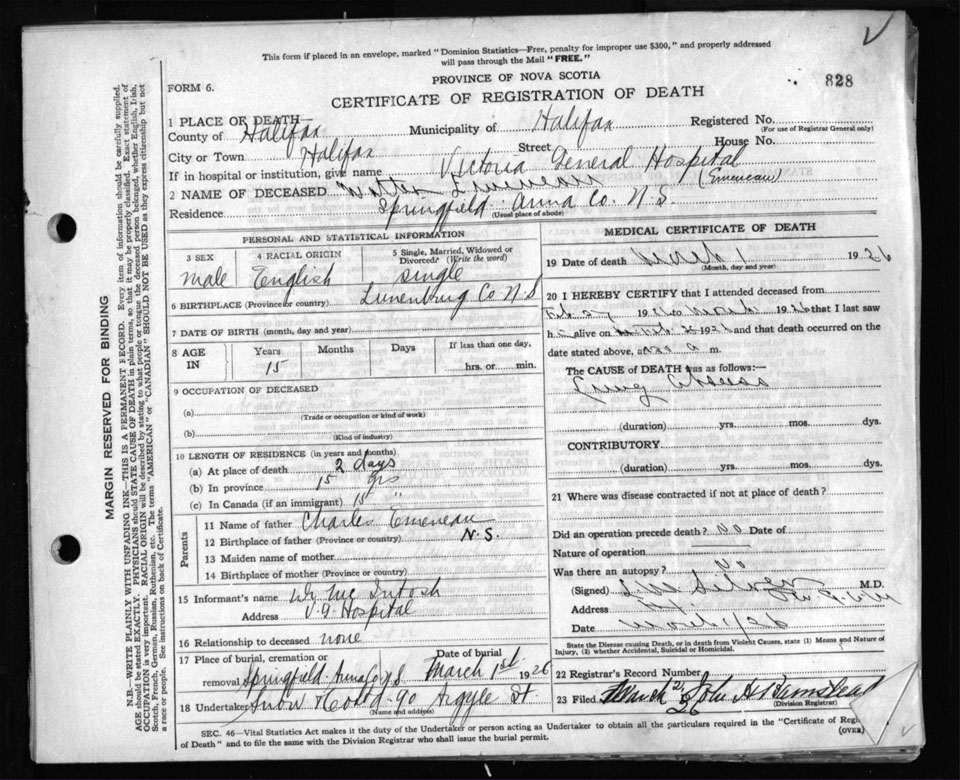 This form if placed in an envelope, marked "Dominion Statistics—Free, penalty for improper use $300," and properly addressed
will pass through the Mail "FREE."
PROVINCE OF NOVA SCOTIA
828
FORM 6.
CERTIFICATE OF REGISTRATION OF DEATH
1 PLACE OF DEATH
County of Halifax Municipality of Halifax Registered No.
(For use of Registrar General only)
City or Town Halifax Street House No.
If in hospital or institution, give name Victoria General Hospital
2 NAME OF DECEASED (Emeneau)
Residence Springfield Anna Co. N.S.
(Usual place of abode)
PERSONAL AND STATISTICAL INFORMATION
3 SEX 4 RACIAL ORIGIN 5 Single, Married, Widowed or Divorced? (Write the word)
male English single
6 BIRTHPLACE (Province or country) Lunenburg Co N.S
7 DATE OF BIRTH (month, day and year)
8 AGE IN Years Months Days If less than one day,
15 hrs. or min.
9 OCCUPATION OF DECEASED
(a)
(Trade or occupation or kind of work)
(b)
(Kind of industry)
10 LENGTH OF RESIDENCE (in years and months)
(a) At place of death 2 days
(b) In province 15 yrs
(c) In Canada (if an immigrant) 15 "
Parents
11 Name of father Charles Emeneau
12 Birthplace of father (Province or country) N.S.
13 Maiden name of mother
14 Birthplace of mother (Province or country)
15 Informant's name Dr McIntosh
Address V.G. Hospital
16 Relationship to deceased none
17 Place of burial, cremation or Date of burial
removal Springfield Anna Co N.S March 1st 1926
18 Undertaker Snow & Co Ltd 90 Argyle St.
(Name and address)
MEDICAL CERTIFICATE OF DEATH
19 Date of death March 1 1926
(Month, day and year)
20 I HEREBY CERTIFY that I attended deceased from
Feb. 27 19 March 1926 that I last saw
h alive on 192 and that death occurred on
date stated above, at a m.
The CAUSE of DEATH was as follows:—
Lung abscess
(duration) yrs. mos. dys.
CONTRIBUTORY
(duration) yrs. mos. dys.
21 Where was disease contracted if not at place of death?
Did an operation precede death? no Date of
Nature of operation
Was there an autopsy? no
(Signed) Silver M.D.
Address
Date March 1/26
State the Disease causing Death, or in death from Violent Causes, state (1) Means and Nature of
Injury, (2) whether Accidental, Suicidal or Homicidal.
22 Registrar's Record Number
23 Filed March 2, 26 John A
(Division Registrar)
SEC. 46—Vital Statistics Act makes it the duty of the Undertaker or person acting as Undertaker to obtain all the particulars required in the "Certificate of Regis
of Death" and to file the same with the Division Registrar who shall issue the burial permit.
(OVER)
MARGIN RESERVED FOR BINDING
N.B.—WRITE PLAINLY WITH UNFADING INK—THIS IS A PERMANENT RECORD. Every item of information should be carefully supplied.
AGE should be stated EXACTLY. PHYSICIANS should STATE CAUSE OF DEATH in plain terms, so that it may be properly classified. Exact statement of
OCCUPATION is very important. RACIAL ORIGIN will be described by stating to what people or tongue the deceased person belonged, whether English, Irish,
Scotch, French, German, Russian, Ruthenian, etc. The terms "AMERICAN" or "CANADIAN" SHOULD NOT BE USED as they express citizenship but not
a race or people. See instructions on back of Certificate.